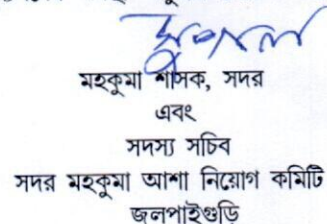 মহকুমা শাসক, সদর
এবং
সদস্য সচিব
সদর মহকুমা আশা নিয়োগ কমিটি
জলপাইগুড়ি